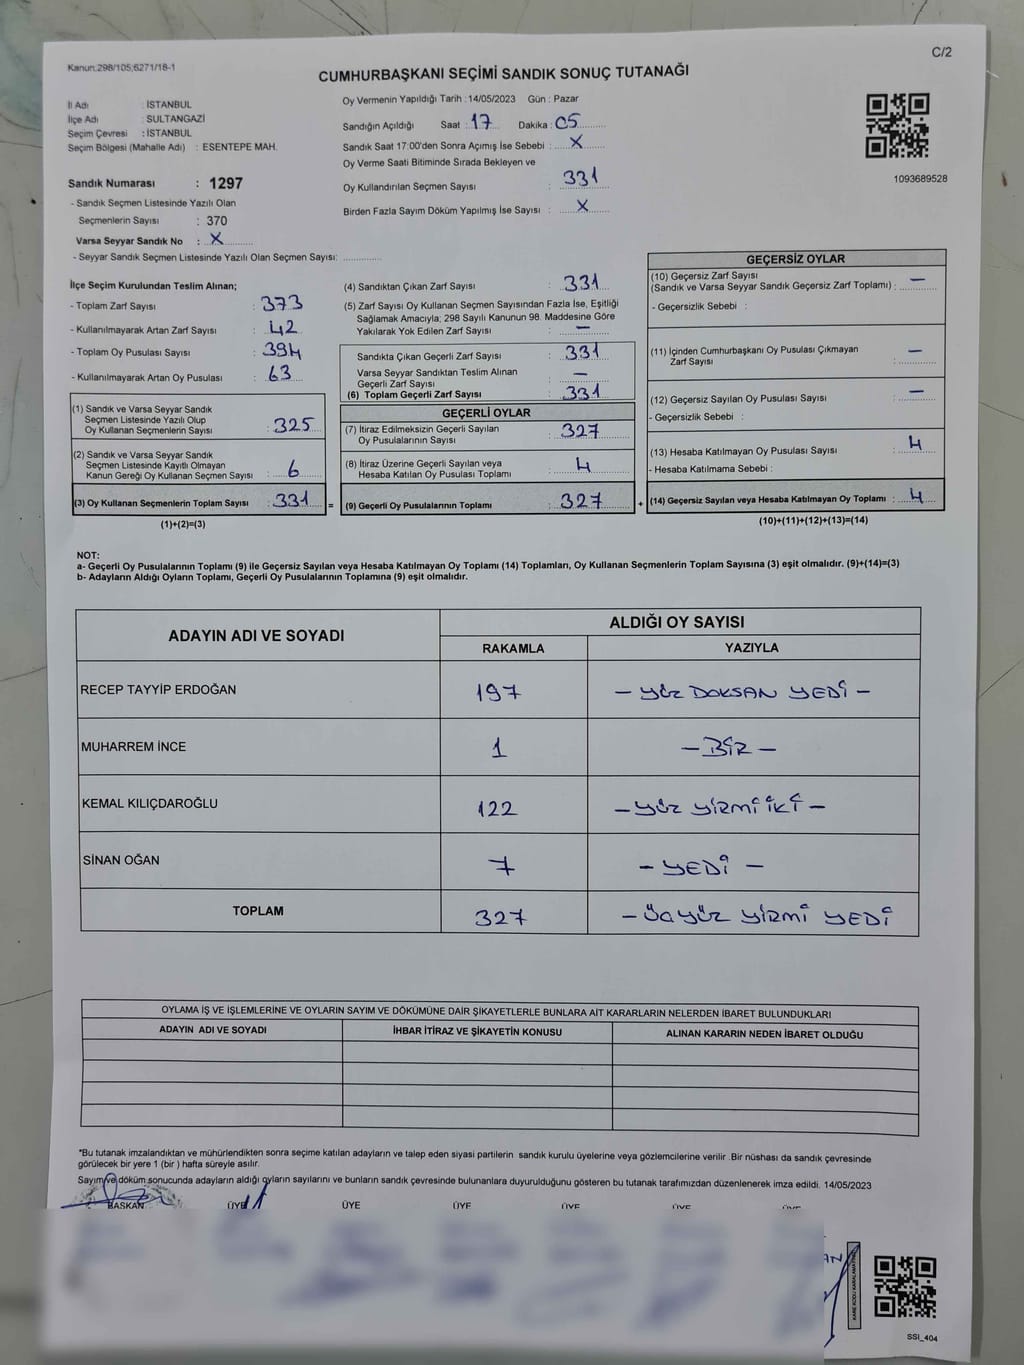 Kanun:298/105;6271/18-1
C/2
CUMHURBAŞKANI SEÇİMİ SANDIK SONUÇ TUTANAĞI
İl Adı : İSTANBUL
İlçe Adı : SULTANGAZİ
Seçim Çevresi : İSTANBUL
Seçim Bölgesi (Mahalle Adı) : ESENTEPE MAH.
Sandık Numarası : 1297
- Sandık Seçmen Listesinde Yazılı Olan
Seçmenlerin Sayısı : 370
Varsa Seyyar Sandık No : X
- Seyyar Sandık Seçmen Listesinde Yazılı Olan Seçmen Sayısı:
Oy Vermenin Yapıldığı Tarih : 14/05/2023 Gün : Pazar
Sandığın Açıldığı Saat : 17 Dakika : 05
Sandık Saat 17:00'den Sonra Açımış İse Sebebi : X
Oy Verme Saati Bitiminde Sırada Bekleyen ve
Oy Kullandırılan Seçmen Sayısı : 331
Birden Fazla Sayım Döküm Yapılmış İse Sayısı : X
1093689528
İlçe Seçim Kurulundan Teslim Alınan;
- Toplam Zarf Sayısı : 373
- Kullanılmayarak Artan Zarf Sayısı : 42
- Toplam Oy Pusulası Sayısı : 394
- Kullanılmayarak Artan Oy Pusulası : 63
(1) Sandık ve Varsa Seyyar Sandık
Seçmen Listesinde Yazılı Olup
Oy Kullanan Seçmenlerin Sayısı : 325
(2) Sandık ve Varsa Seyyar Sandık
Seçmen Listesinde Kayıtlı Olmayan
Kanun Gereği Oy Kullanan Seçmen Sayısı : 6
(3) Oy Kullanan Seçmenlerin Toplam Sayısı : 331 =
(1)+(2)=(3)
(4) Sandıktan Çıkan Zarf Sayısı : 331
(5) Zarf Sayısı Oy Kullanan Seçmen Sayısından Fazla İse, Eşitliği
Sağlamak Amacıyla; 298 Sayılı Kanunun 98. Maddesine Göre
Yakılarak Yok Edilen Zarf Sayısı : —
Sandıkta Çıkan Geçerli Zarf Sayısı : 331
Varsa Seyyar Sandıktan Teslim Alınan
Geçerli Zarf Sayısı : —
(6) Toplam Geçerli Zarf Sayısı : 331
GEÇERLİ OYLAR
(7) İtiraz Edilmeksizin Geçerli Sayılan
Oy Pusulalarının Sayısı : 327
(8) İtiraz Üzerine Geçerli Sayılan veya
Hesaba Katılan Oy Pusulası Toplamı : 4
(9) Geçerli Oy Pusulalarının Toplamı : 327 +
GEÇERSİZ OYLAR
(10) Geçersiz Zarf Sayısı
(Sandık ve Varsa Seyyar Sandık Geçersiz Zarf Toplamı) : —
- Geçersizlik Sebebi :
(11) İçinden Cumhurbaşkanı Oy Pusulası Çıkmayan
Zarf Sayısı : —
(12) Geçersiz Sayılan Oy Pusulası Sayısı : —
- Geçersizlik Sebebi :
(13) Hesaba Katılmayan Oy Pusulası Sayısı : 4
- Hesaba Katılmama Sebebi :
(14) Geçersiz Sayılan veya Hesaba Katılmayan Oy Toplamı : 4
(10)+(11)+(12)+(13)=(14)
NOT:
a- Geçerli Oy Pusulalarının Toplamı (9) ile Geçersiz Sayılan veya Hesaba Katılmayan Oy Toplamı (14) Toplamları, Oy Kullanan Seçmenlerin Toplam Sayısına (3) eşit olmalıdır. (9)+(14)=(3)
b- Adayların Aldığı Oyların Toplamı, Geçerli Oy Pusulalarının Toplamına (9) eşit olmalıdır.
ADAYIN ADI VE SOYADI
ALDIĞI OY SAYISI
RAKAMLA YAZIYLA
RECEP TAYYİP ERDOĞAN 197 – YÜZ DOKSAN YEDİ –
MUHARREM İNCE 1 – BİR –
KEMAL KILIÇDAROĞLU 122 – YÜZ YİRMİ İKİ –
SİNAN OĞAN 7 – YEDİ –
TOPLAM 327 – ÜÇYÜZ YİRMİ YEDİ
OYLAMA İŞ VE İŞLEMLERİNE VE OYLARIN SAYIM VE DÖKÜMÜNE DAİR ŞİKAYETLERLE BUNLARA AİT KARARLARIN NELERDEN İBARET BULUNDUKLARI
ADAYIN ADI VE SOYADI İHBAR İTİRAZ VE ŞİKAYETİN KONUSU ALINAN KARARIN NEDEN İBARET OLDUĞU
*Bu tutanak imzalandıktan ve mühürlendikten sonra seçime katılan adayların ve talep eden siyasi partilerin sandık kurulu üyelerine veya gözlemcilerine verilir .Bir nüshası da sandık çevresinde
görülecek bir yere 1 (bir ) hafta süreyle asılır.
Sayım ve döküm sonucunda adayların aldığı oyların sayılarını ve bunların sandık çevresinde bulunanlara duyurulduğunu gösteren bu tutanak tarafımızdan düzenlenerek imza edildi. 14/05/2023
BAŞKAN ÜYE ÜYE ÜYE ÜYE ÜYE ÜYE
SSI_404